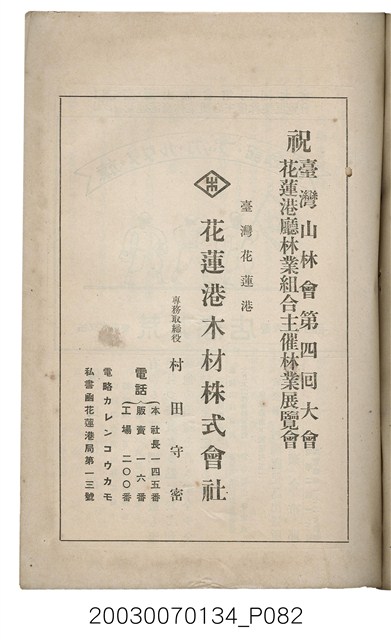 祝
臺灣山林會第四回大會
花蓮港廳林業組合主催林業展覽會
臺灣花蓮港
花蓮港木材株式會社
專務取締役 村田守密
電話
本社長一四五番
販賣一六番
工場二〇〇番
電略カレンコウカモ
私書凾花蓮港局第一三號
20030070134_P082